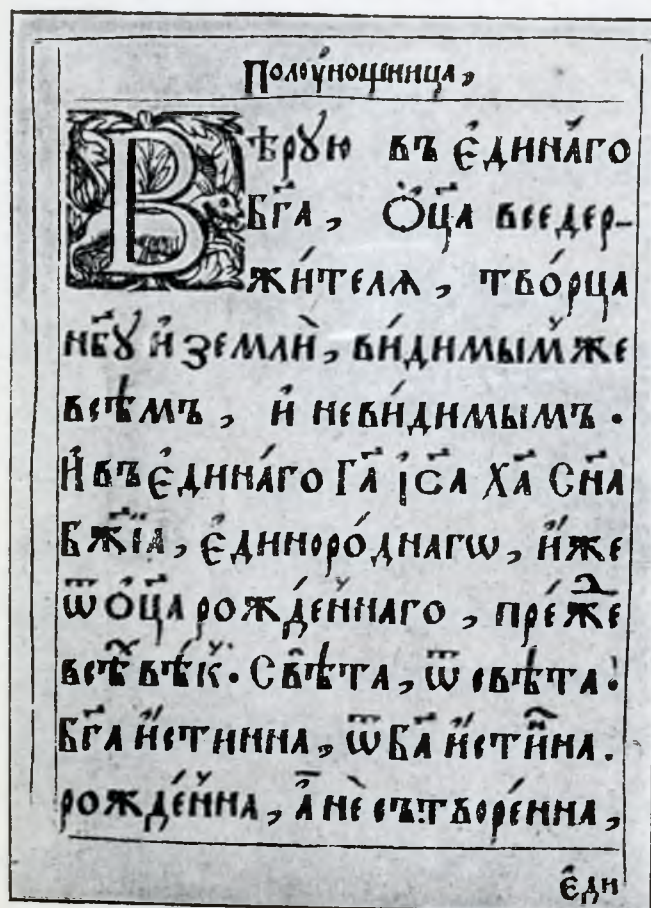 Полоу́нощница,
Вѣ́рꙋю въ є҆дина́го
бг҃а, ѻ҆ц҃а вседер-
жи́телѧ, тво́рца
нб҃ꙋ и҆ землѝ, ви́димым̾ же
всѣ́мъ, и҆ неви́димымъ.
И҆ въ є҆дина́го гд҃а і҆с҃а ха҃ сн҃а
бж҃їѧ, є҆диноро́днагѡ, и҆́же
ѿ ѻ҆ц҃а рожде́н̾наго, пре́ⷤде
всѣ́хъ вѣ́к̾. Свѣ́та, ѿ свѣ́та.
бг҃а и҆́стинна, ѿ бг҃а и҆́стинна.
рожде́н̾на, а҆ нѐ сътворе́нна,
є҆ди